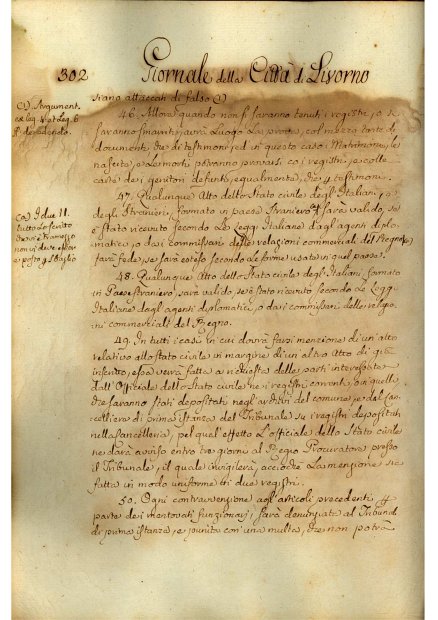 302
Giornale della Città di Livorno
siano attaccati di falso (1)
46. Allora quando non si saranno tenuti i registri, o si
saranno smarriti, avrà luogo la prova, col mezzo tanto di
documenti, che di testimonj, ed in questo caso i Matrimonj, le
nascite, e le morti potranno provarsi co' i registri, e colle
carte dei genitori defunti, egualmente, che testimonj.
47. Qualunque Atto dello Stato civile degl' Italiani, o
degli Stranieri, formato in paese straniero sarà valido, se
è stato ricevuto secondo le Leggi Italiane dagl' agenti diplo-
matici, o dai commissarj delle relazioni commerciali del Regno
farà fede, se sarà esteso secondo le forme usate in quel paese.
48. Qualunque Atto dello Stato civile degl' Italiani, formato
in Paese straniero, sarà valido, se è stato ricevuto secondo le Leggi
Italiane dagl' agenti diplomatici, o dai commissarj delle relazi-
oni commerciali del Regno.
49. In tutti i casi in cui dovrà farsi menzione di un atto
relativo allo stato civile in margine di un altro Atto di già
inserito, essa verrà fatta a richiesta delle parti interessate
dall' Officiale dello Stato civile ne' i registri correnti, o in quelli,
che saranno stati depositati negli archivi del comune, e dal Can-
celliere di prima istanza del Tribunale su i registri depositati
nella Cancelleria, pel qual' effetto l'officiale dello Stato civile
ne darà avviso entro tre giorni al Regio Procuratore presso
il Tribunale, il quale invigilerà, acciochè la menzione sia
fatta in modo uniforme tri due registri.
50. Ogni contravvenzione agli articoli precedenti
parte dei mentovati funzionarj, sarà denunziata al Tribunale
di prima istanza, e punita con' una multa, che non potrà
(1) Argument.
ex leg. et Leg. 6
ff. de edendo.
(2) I due
tutto lo scritto
non vi deve essere
posto sbaglio